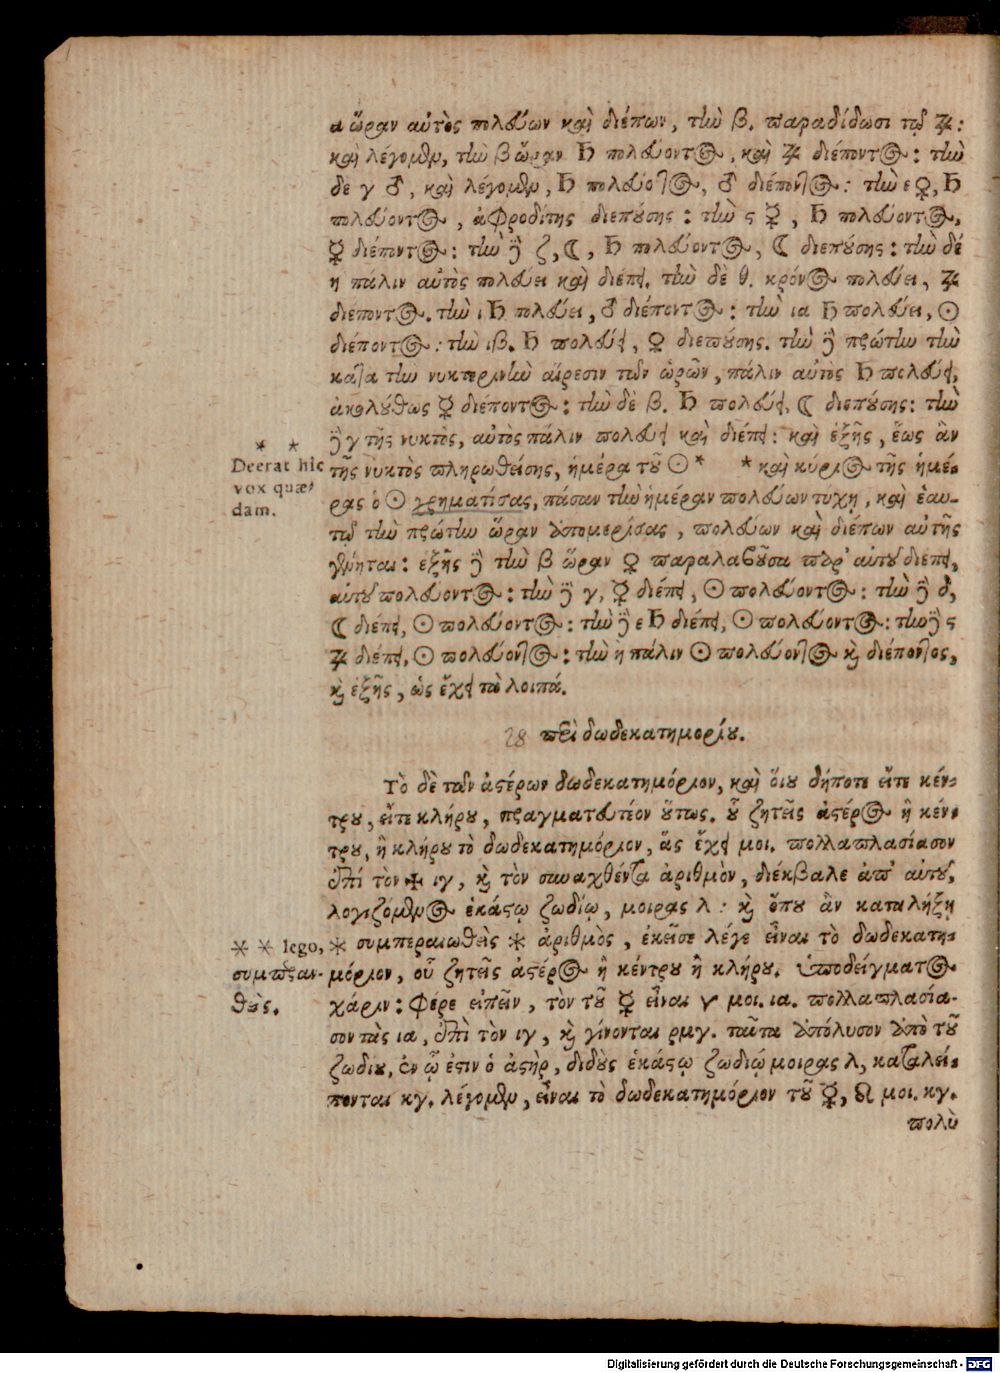 α ὥραν αὐτὸς πολεύων καὶ διέπων, τὴν β. παραδίδωσι τῷ ♃:
καὶ λέγομεν, τὴν β ὥραν ♄ πολεύοντος, καὶ ♃ διέποντος: τὴν
δὲ γ ♂, καὶ λέγομεν, ♄ πολεύοντος, ♂ διέποντος: τὴν ε ♀, ♄
πολεύοντος, ἀφροδίτης διεπούσης: τὴν ς ☿, ♄ πολεύοντος,
☿ διέποντος: τὴν δὲ ζ, ☾, ♄ πολεύοντος, ☾ διεπούσης: τὴν δέ
η πάλιν αὐτὸς πολεύει καὶ διέπει. τὴν δὲ θ. κρόνος πολεύει, ♃
διέποντος. τὴν ι ♄ πολεύει, ♂ διέποντος: τὴν ια ♄ πολεύει, ☉
διέποντος: τὴν ιβ. ♄ πολεύει, ♀ διεπούσης. τὴν δὲ πρώτην τὴν
κατα τὴν νυκτερινὴν αἵρεσιν τῶν ὡρῶν, πάλιν αὐτὸς ♄ πολεύει,
ἀκολούθως ☿ διέποντος: τὴν δὲ β. ♄ πολεύει, ☾ διεπούσης: τὴν
δὲ γ τῆς νυκτὸς, αὐτὸς πάλιν πολεύει καὶ διέπει: καὶ ἑξῆς, ἕως ἂν
* *
Deerat hic
vox quæ-
dam.
τῆς νυκτὸς πληρωθείσης, ἡμέρα τοῦ ☉ * * καὶ κύριος τῆς ἡμέ-
ρας ὁ ☉ χρηματίσας, πάσαν τὴν ἡμέραν πολεύων τύχῃ, καὶ ἑαυ-
τῷ τὴν πρώτην ὥραν ἀπομερίσας, πολεύων καὶ διέπων αὐτῆς
γένηται: ἑξῆς δὲ τὴν β ὥραν ♀ παραλαβοῦσα παρ' αὐτοῦ διέπει,
αὐτοῦ πολεύοντος: τὴν δὲ γ, ☿ διέπει, ☉ πολεύοντος: τὴν δὲ δ,
☾ διέπει, ☉ πολεύοντος: τὴν δὲ ε ♄ διέπει, ☉ πολεύοντος: τὴν δὲ ς
♃ διέπει, ☉ πολεύοντος: τὴν η πάλιν ☉ πολεύοντος καὶ διέποντος,
καὶ ἑξῆς, ὡς ἔχει τὰ λοιπά.
28 περὶ δωδεκατημορίου.
Τὸ δὲ τῶν ἀστέρων δωδεκατημόριον, καὶ ὅιου δήποτε εἴτε κέν-
τρου, εἴτε κλήρου, πραγματευτέον οὕτως. οὗ ζητεῖς ἀστέρος ἢ κέν-
τρου, ἢ κλήρου τὸ δωδεκατημόριον, ἃς ἔχει μοι. πολλαπλασίασον
ἐπὶ τὸν ✠ ιγ, καὶ τὸν συναχθέντα ἀριθμὸν, διέκβαλε ἀπ' αὐτοῦ,
λογιζόμενος ἑκάστῳ ζωδίῳ, μοιρας λ: καὶ ὅπου ἂν καταλήξῃ
* * lego,
συμπεραν-
θεὶς.
* συμπεραιωθεὶς * ἀριθμὸς, ἐκεῖσε λέγε εἶναι τὸ δωδεκατη-
μόριον, οὗ ζητεῖς ἀστέρος ἢ κέντρου ἢ κλήρου. ὑποδείγματος
χάριν: φέρε εἰπεῖν, τὸν τοῦ ☿ εἶναι ♈ μοι. ια. πολλαπλασία-
σον τὰς ια, ἐπὶ τὸν ιγ, καὶ γίνονται ρμγ. ταῦτα ἀπόλυσον ἀπὸ τοῦ
ζωδίου, ἐν ᾧ ἐστιν ὁ ἀστὴρ, διδοὺς ἑκάστῳ ζωδίῳ μοιρας λ, καταλεί-
πονται κγ. λέγομεν, εἶναι τὸ δωδεκατημόριον τοῦ ☿, ♌ μοι. κγ.
πολὺ
Digitalisierung gefördert durch die Deutsche Forschungsgemeinschaft - DFG